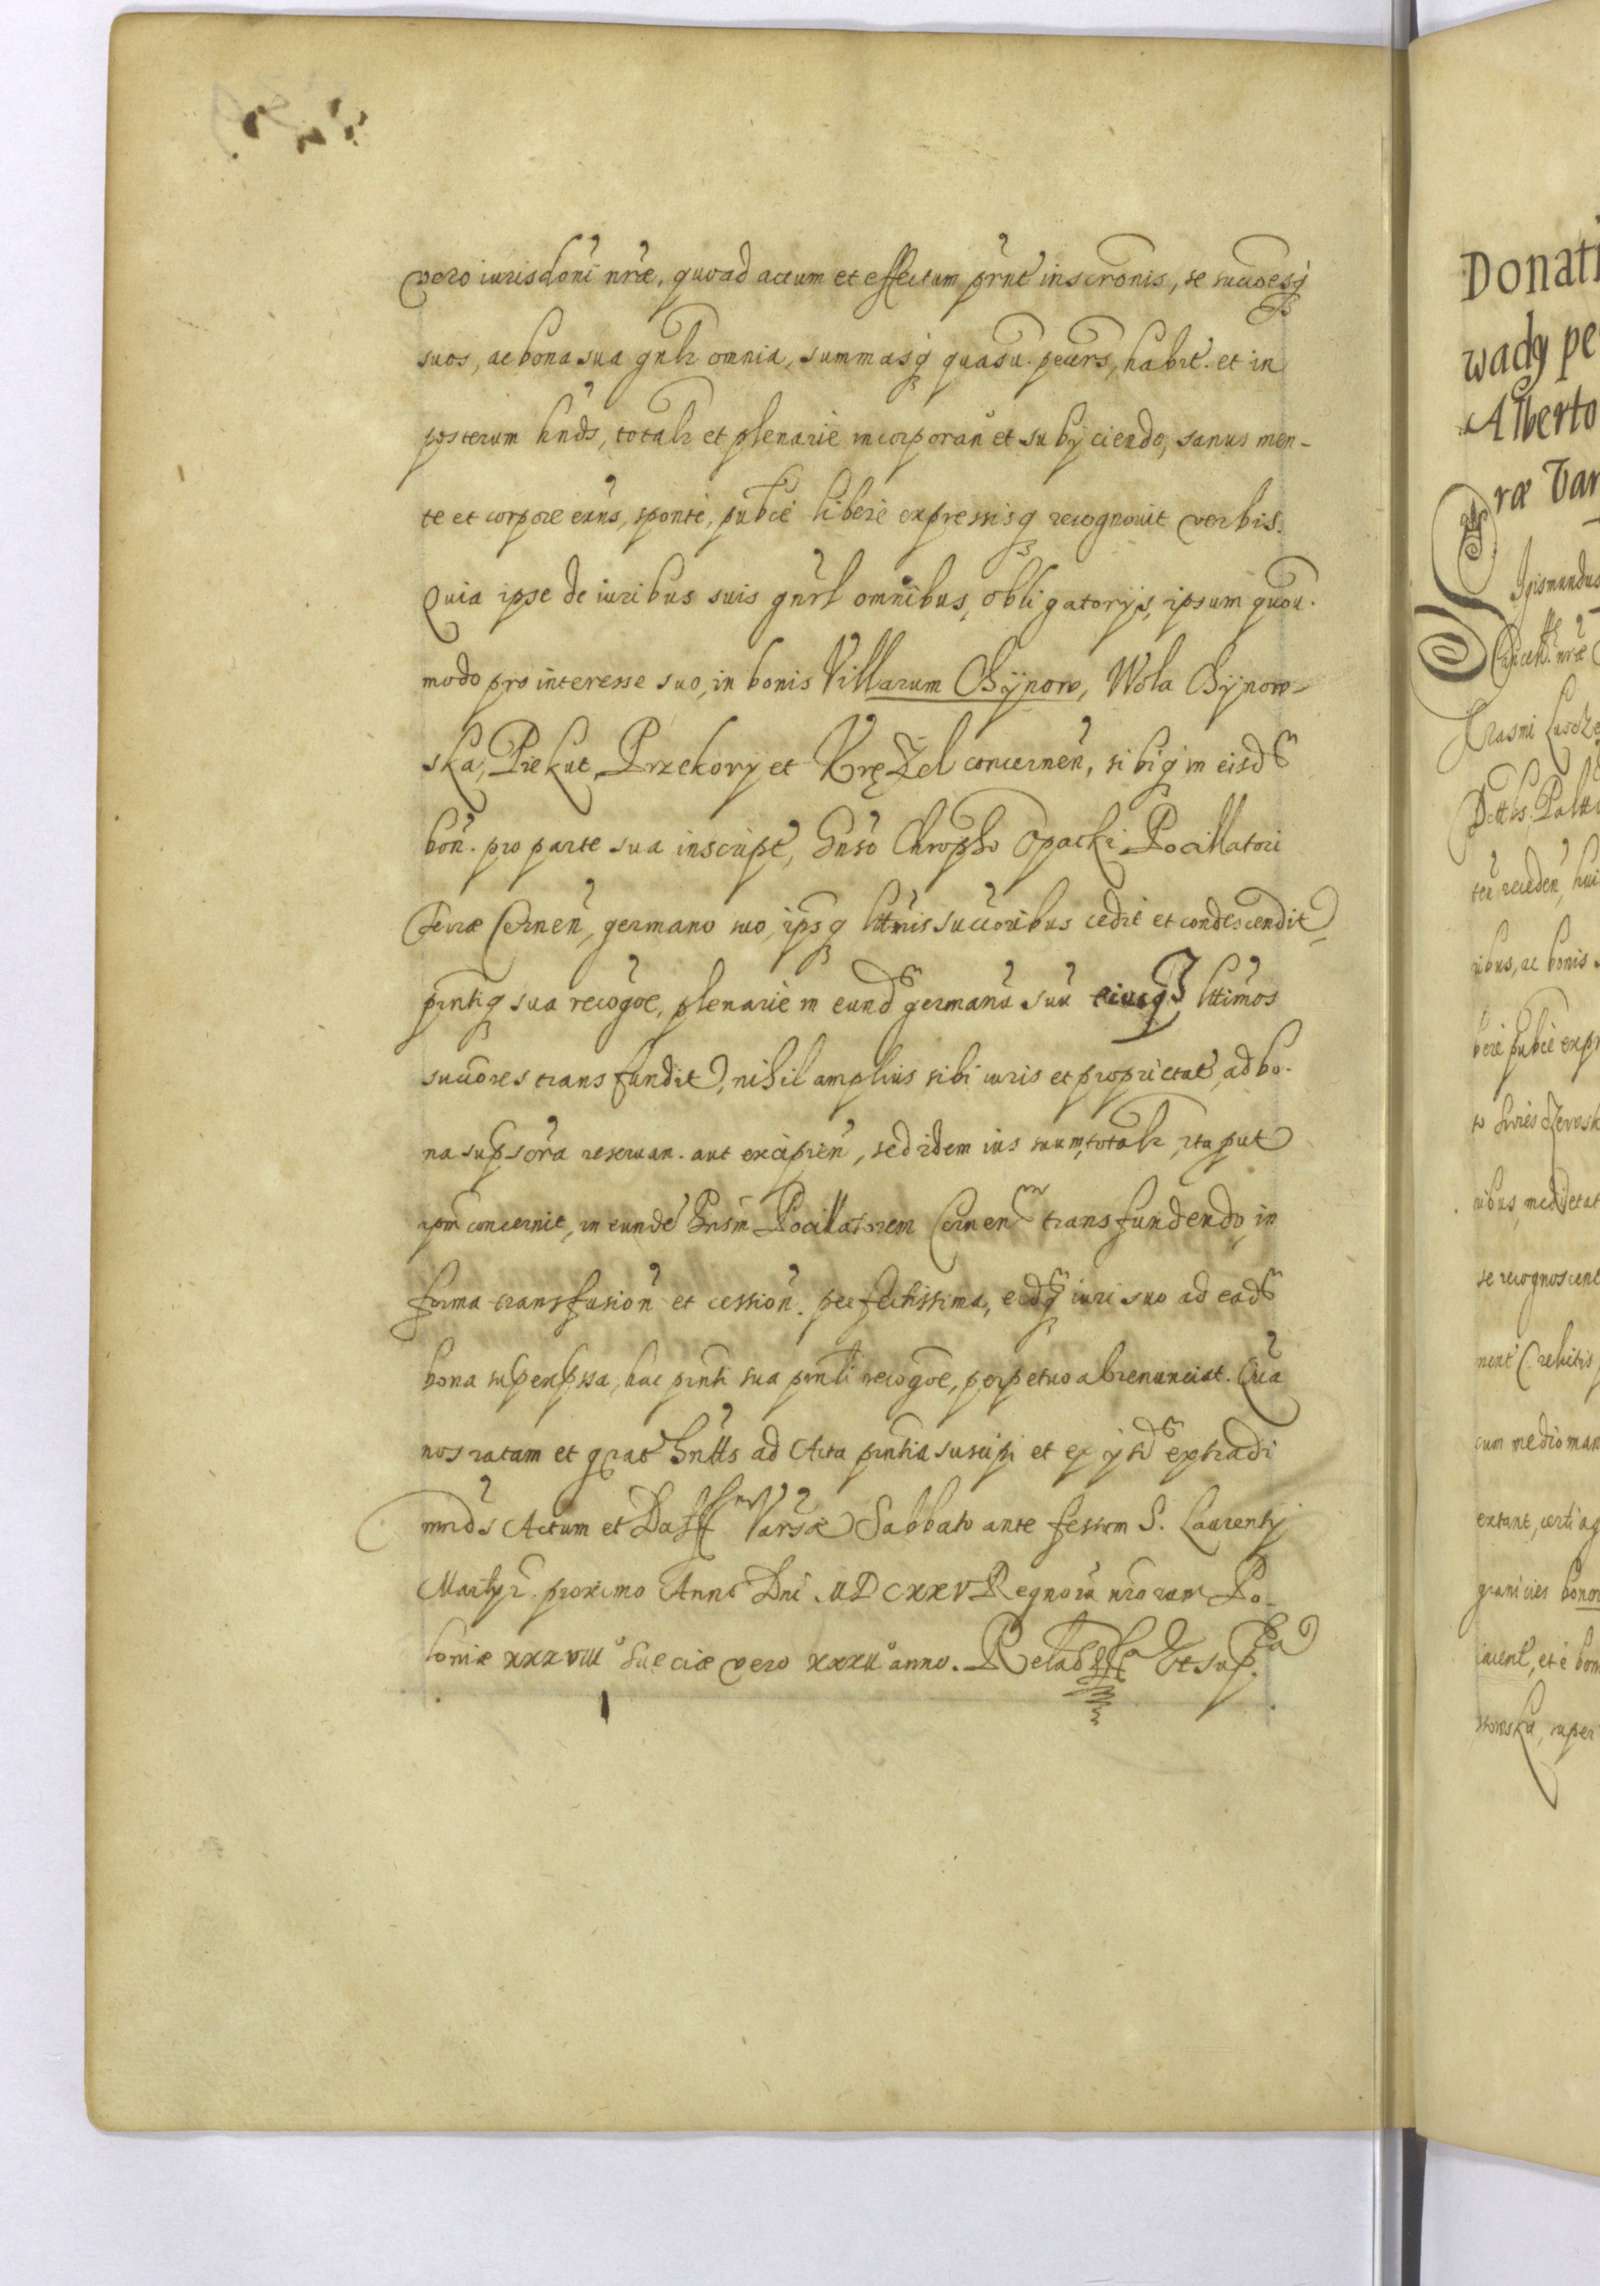 vero iurisdoni nrae, quoad actum et effectum prnt inscronis, se succesq
suos, ac bona sua gnlr omnia, summasq quasu. pecrs, habit. et in
posterum hnds, totalr et plenarie incorporan et subijciendo, sanus men-
te et corpore exns, sponte, pubce libere expressisq recognovit verbis.
Quia ipse de iuribus suis gnrl omnibus, obligatorijs, ipsum quou.
modo pro interesse suo, in bonis Villarum Chÿnow, Wola Chÿnow-
ska, Piekut, Przekory et Krężel concernen, sibiq in eisd
bon. pro parte sua inscript, Gnso Chropho Opacki Pocillatori
Terrae Cernen, germano suo, ipsq lttmis succoribus cedit et condescendit,
prntiq sua recogoe, plenarie in eund germanu suu eiusq lttimos
succores transfundit, nihil amplius sibi iuris et proprietat, ad bo-
na supsora reservan. aut excipien, sed idem ius suum, totalr, ita put
ipm concernit, in eunde Gnsm Pocillatorem Cernen transfundendo, in
forma transfusion et cession. perfectissima, eodq iuri suo ad ead
bona supexpssa, hac prnti sua prnti recogoe, perpetuo abrenunciat. Qua
nos ratam et grat hntts ad Acta prntia suscipi et ex ijsd extradi
mnds Actum et Datt Varsae Sabbato ante festum S. Laurentij
Martyr. proximo Anno Dni MDCXXV Regnoru nrorum Po-
loniae XXXVIII Sueciae vero XXXII anno. Relat Vt sup.
Donati
wady pe
Alberto
rae Var
Sigismundus
nrae
Erasmi
Palti
receden, hui
ribus, ac bonis
bere pubce exp
nibus, medietat
se recognoscent
cum medio man
extant, certi ag
granicies bonor
iacent, et e bon
super